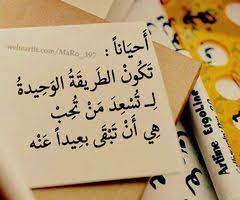 weheartit.com/MaRo_397
أَحيَاناً :
تَكُونْ الطَريقَةُ الوَحِيدةُ
لِـ تُسْعِدَ مَنْ تُحِبْ
هِي أَنْ تَبْقَى بعِيداً عَنْه
Artline ErgoLine
Artline